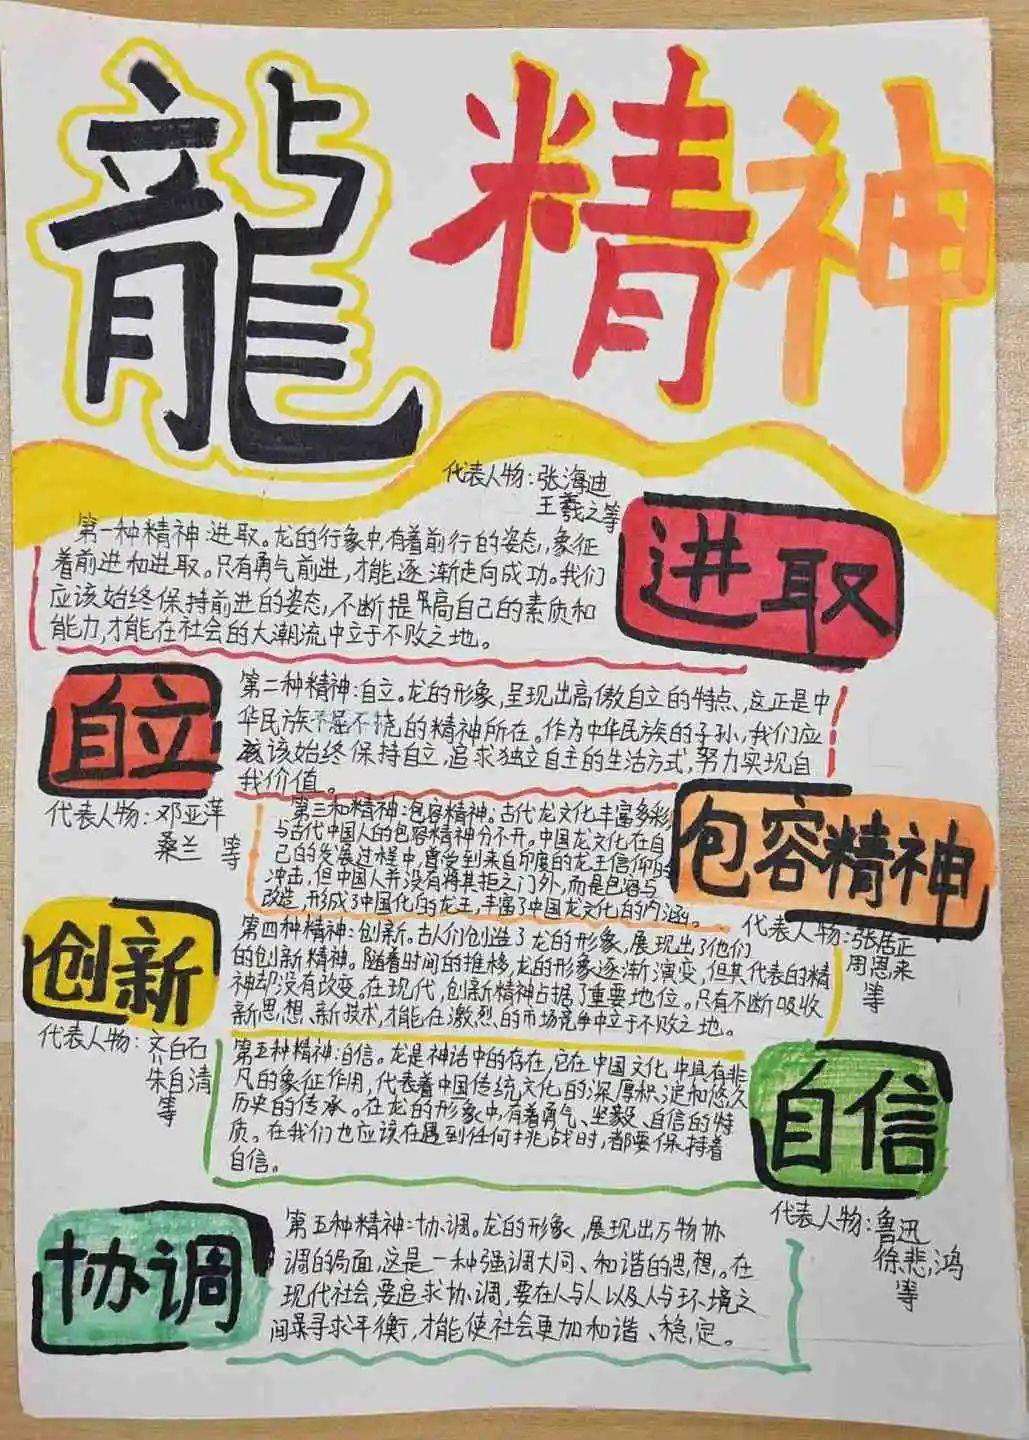 龍精神
代表人物：张海迪
王羲之等
进取
第一种精神：进取。龙的行象中，有着前行的姿态，象征
着前进和进取。只有勇气前进，才能逐渐走向成功。我们
应该始终保持前进的姿态，不断提高自己的素质和
能力，才能在社会的大潮流中立于不败之地。
自立
第二种精神：自立。龙的形象，呈现出高傲自立的特点，这正是中
华民族不屈不挠的精神所在。作为中华民族的子孙，我们应
该始终保持自立，追求独立自主的生活方式，努力实现自
我价值。
代表人物：邓亚萍
桑兰 等
第三种精神：包容精神。古代龙文化丰富多彩
与古代中国人的包容精神分不开。中国龙文化在自
己的发展过程中，曾受到来自印度的龙王信仰的
冲击，但中国人并没有将其拒之门外，而是包容与
改造，形成了中国化的龙王，丰富了中国龙文化的内涵。
包容精神
代表人物：张居正
周恩来
等
创新
第四种精神：创新。古人们创造了龙的形象，展现出了他们
的创新精神。随着时间的推移，龙的形象逐渐演变，但其代表的精
神却没有改变。在现代，创新精神占据了重要地位。只有不断吸收
新思想、新技术，才能在激烈的市场竞争中立于不败之地。
代表人物：齐白石
朱自清
等
第五种精神：自信。龙是神话中的存在，它在中国文化中具有非
凡的象征作用，代表着中国传统文化的深厚积淀和悠久
历史的传承。在龙的形象中，有着勇气、坚毅、自信的特
质。在我们也应该在遇到任何挑战时，都要保持着
自信。
自信
代表人物：鲁迅
徐悲鸿
等
协调
第五种精神：协调。龙的形象，展现出万物协
调的局面，这是一种强调大同、和谐的思想。在
现代社会，要追求协调，要在人与人以及人与环境之
间寻求平衡，才能使社会更加和谐、稳定。